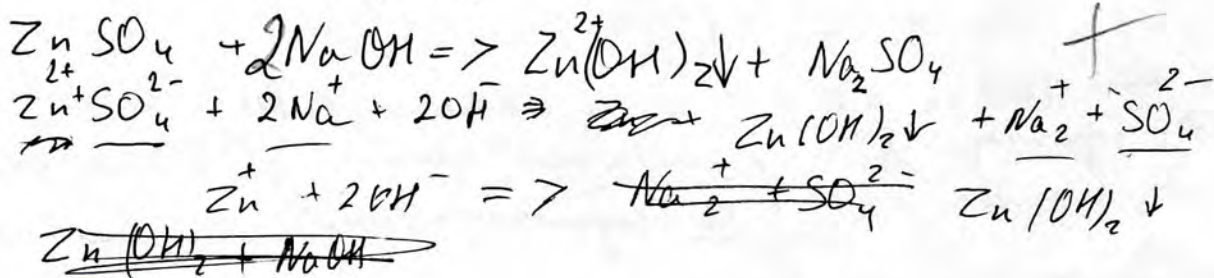 ZnSO₄ + 2NaOH => Zn²⁺(OH)₂↓ + Na₂SO₄ +
Zn²⁺ + SO₄²⁻ + 2Na⁺ + 2OH⁻ => Zn(OH)₂↓ + Na₂⁺ + SO₄²⁻
Zn⁺ + 2OH⁻ => ~~Na₂⁺ + SO₄²⁻~~ Zn(OH)₂↓
~~Zn(OH)₂ + NaOH~~